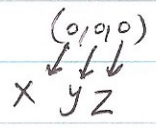 (0,0,0)
x y z